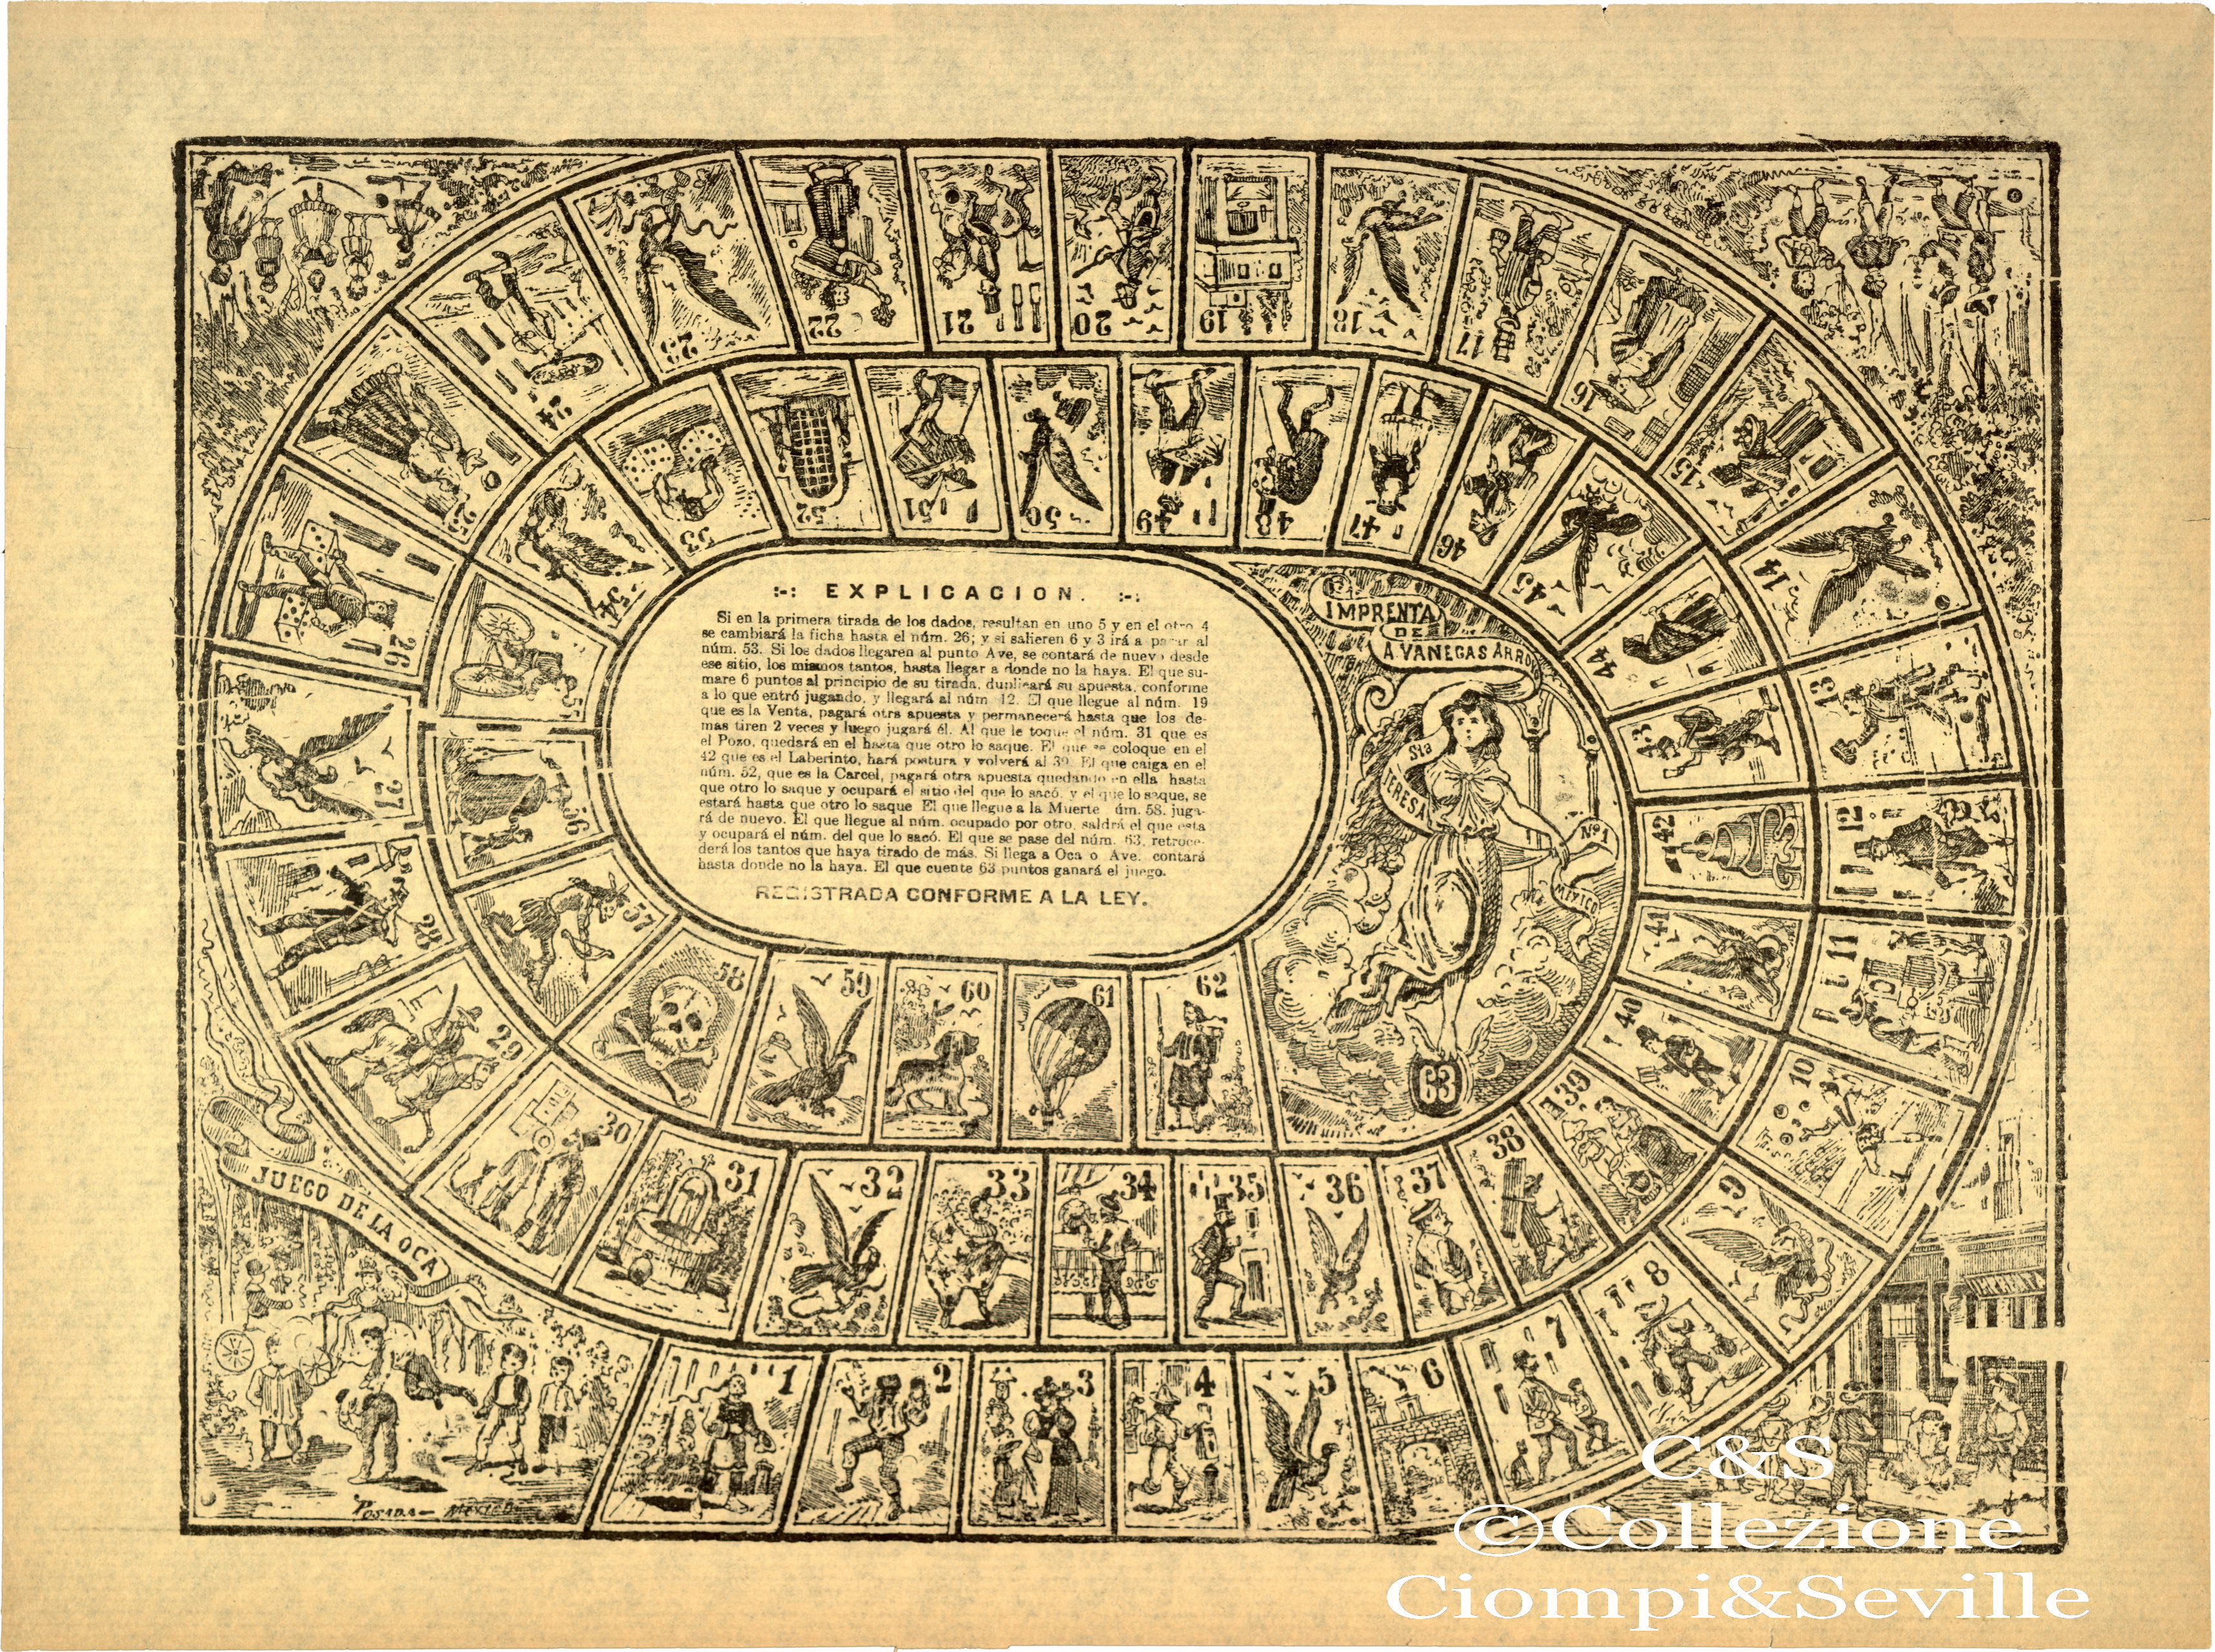 :-: EXPLICACION. :-:
Si en la primera tirada de los dados, resultan en uno 5 y en el otro 4
se cambiará la ficha hasta el núm. 26; y si salieren 6 y 3 irá a parar al
núm. 53. Si los dados llegaren al punto Ave, se contará de nuevo desde
ese sitio, los mismos tantos, hasta llegar a donde no la haya. El que su-
mare 6 puntos al principio de su tirada, duplicará su apuesta, conforme
a lo que entró jugando, y llegará al núm 12. El que llegue al núm. 19
que es la Venta, pagará otra apuesta y permanecerá hasta que los de-
mas tiren 2 veces y luego jugará él. Al que le toque el núm. 31 que es
el Pozo, quedará en el hasta que otro lo saque. El que se coloque en el
42 que es el Laberinto, hará postura y volverá al 39. El que caiga en el
núm. 52, que es la Carcel, pagará otra apuesta quedando en ella hasta
que otro lo saque y ocupará el sitio del que lo sacó, y el que lo saque, se
estará hasta que otro lo saque El que llegue a la Muerte úm. 58, juga-
rá de nuevo. El que llegue al núm. ocupado por otro, saldrá el que esta
y ocupará el núm. del que lo sacó. El que se pase del núm. 63, retroce-
derá los tantos que haya tirado de más. Si llega a Oca o Ave, contará
hasta donde no la haya. El que cuente 63 puntos ganará el juego.
REGISTRADA CONFORME A LA LEY.
IMPRENTA
DE
A. VANEGAS ARROYO
Sta
TERESA
No 1
MEXICO
JUEGO DE LA OCA
POSADA- MEXICO
1
2
3
4
5
6
7
8
9
10
11
12
13
14
15
16
17
18
19
20
21
22
23
24
25
26
27
28
29
30
31
32
33
34
35
36
37
38
39
40
41
42
43
44
45
46
47
48
49
50
51
52
53
54
55
56
57
58
59
60
61
62
63
C&S
©Collezione
Ciompi&Seville